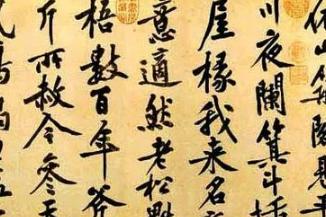 依山築閣見
川夜闌箕斗插
屋椽我来名
意適然老松魁
梧數百年斧
斤所赦今參天
風鳴媧皇五